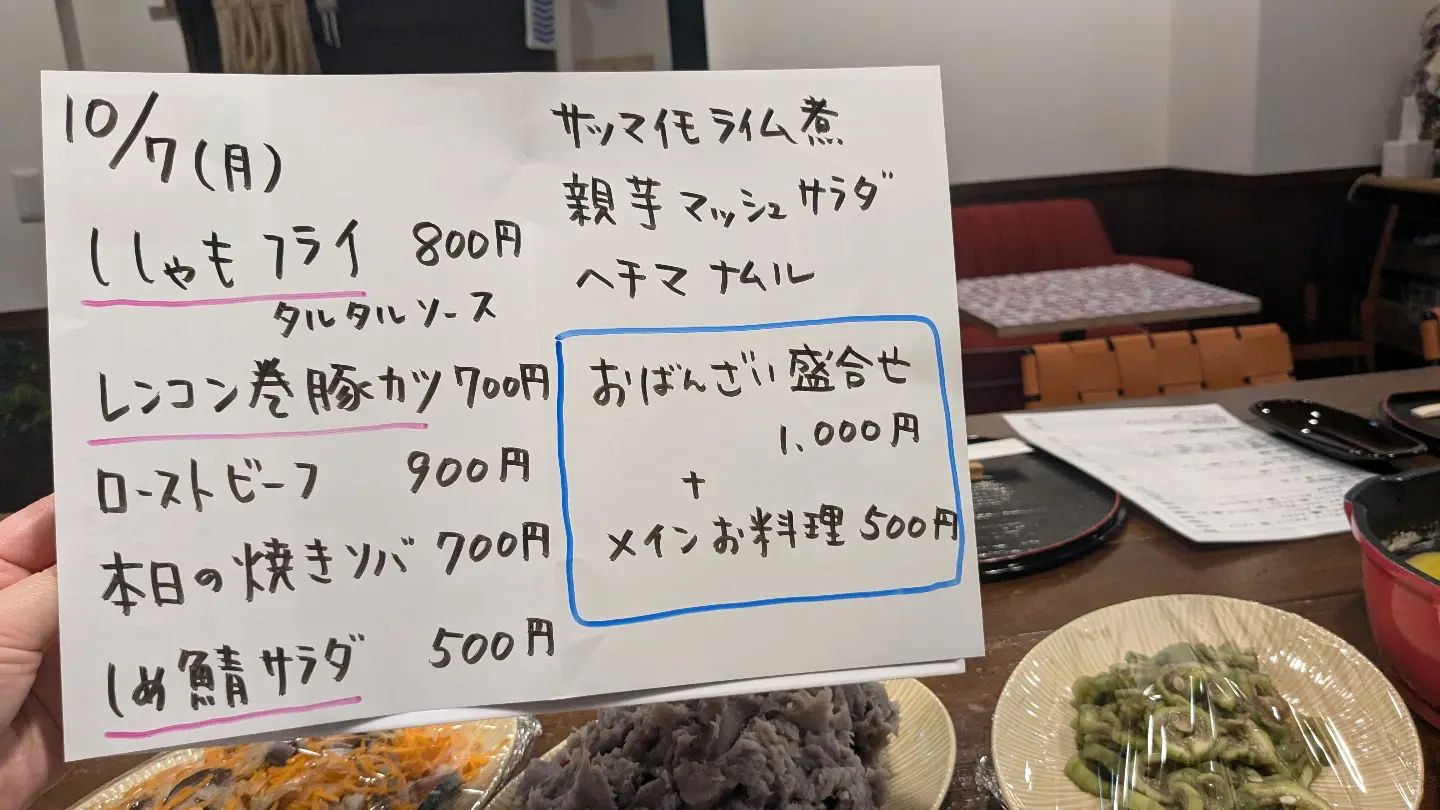 10/7(月)
ししゃもフライ 800円
タルタルソース
レンコン巻豚カツ 700円
ローストビーフ 900円
本日の焼きソバ 700円
しめ鯖サラダ 500円
サツマイモライム煮
親芋マッシュサラダ
ヘチマ ナムル
おばんざい盛合せ
1,000円
+
メインお料理 500円